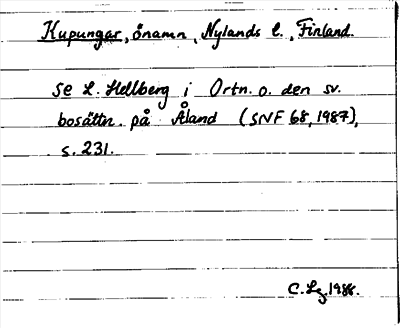 Kupungar, önamn, Nylands l., Finland.
se L. Hellberg i Ortn. o. den sv.
bosättn. på Åland (SNF 68, 1987),
s. 231.
C. Lg. 1988.